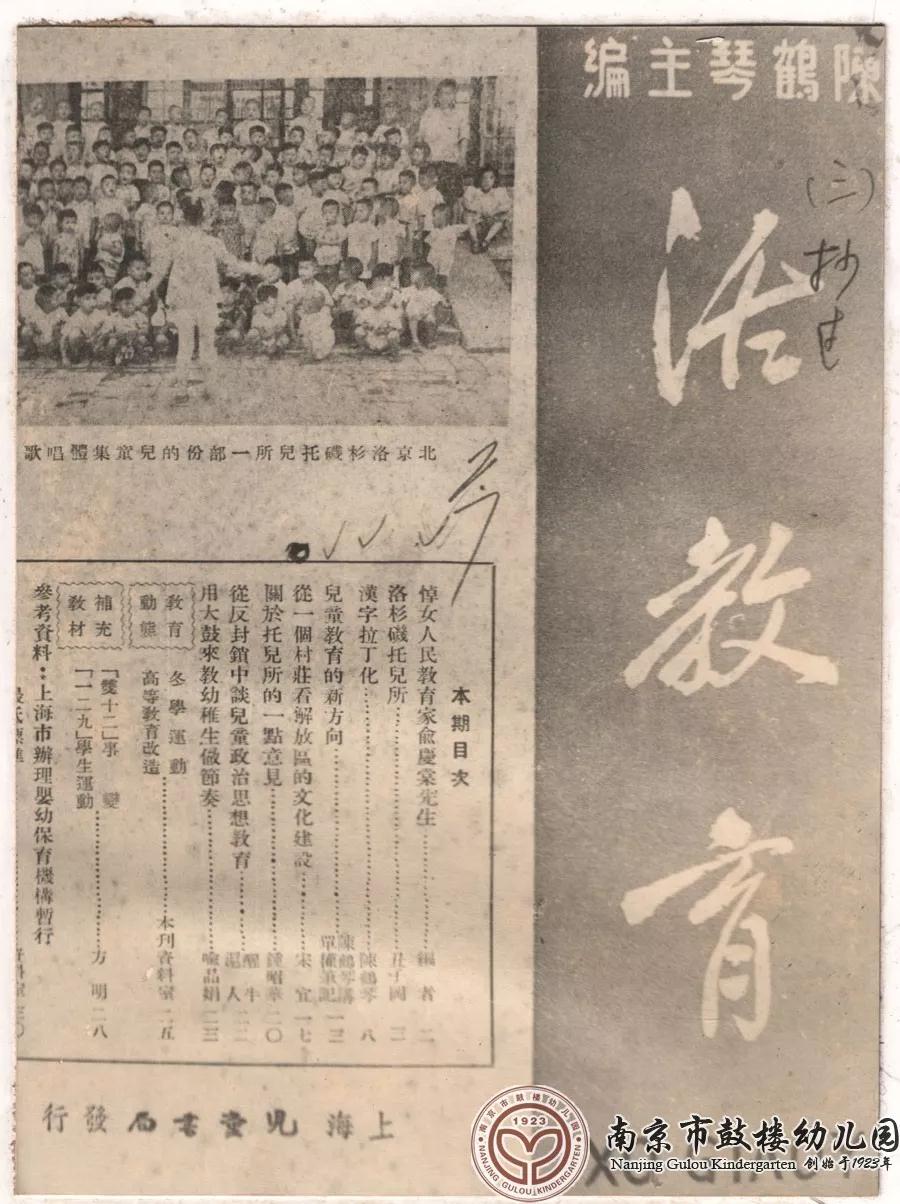 陳鶴琴主編
活教育
(三)
北京洛杉磯托兒所一部份的兒童集體唱歌
本期目次
悼女人民教育家俞慶棠先生……編者 二
洛杉磯托兒所…… 三
漢字拉丁化……陳鶴琴 八
兒童教育的新方向……陳鶴琴講 一三
從一個村莊看解放區的文化建設……宋宜 一七
關於托兒所的一點意見……鍾昭華 二〇
從反封鎖中談兒童政治思想教育……醒牛 二二
用大鼓來教幼稚生做節奏……喻品娟 二三
教育動態
冬學運動
高等教育改造……本刊資料室 二五
補充教材
「雙十二」事變
「一二九」學生運動……方明 二八
參考資料:上海市辦理嬰幼保育機構暫行
最低標準
上海兒童書局發行
南京市鼓楼幼儿园
1923
NANJING GULOU KINDERGARTEN
南京市鼓楼幼儿园
Nanjing Gulou Kindergarten 创始于1923年